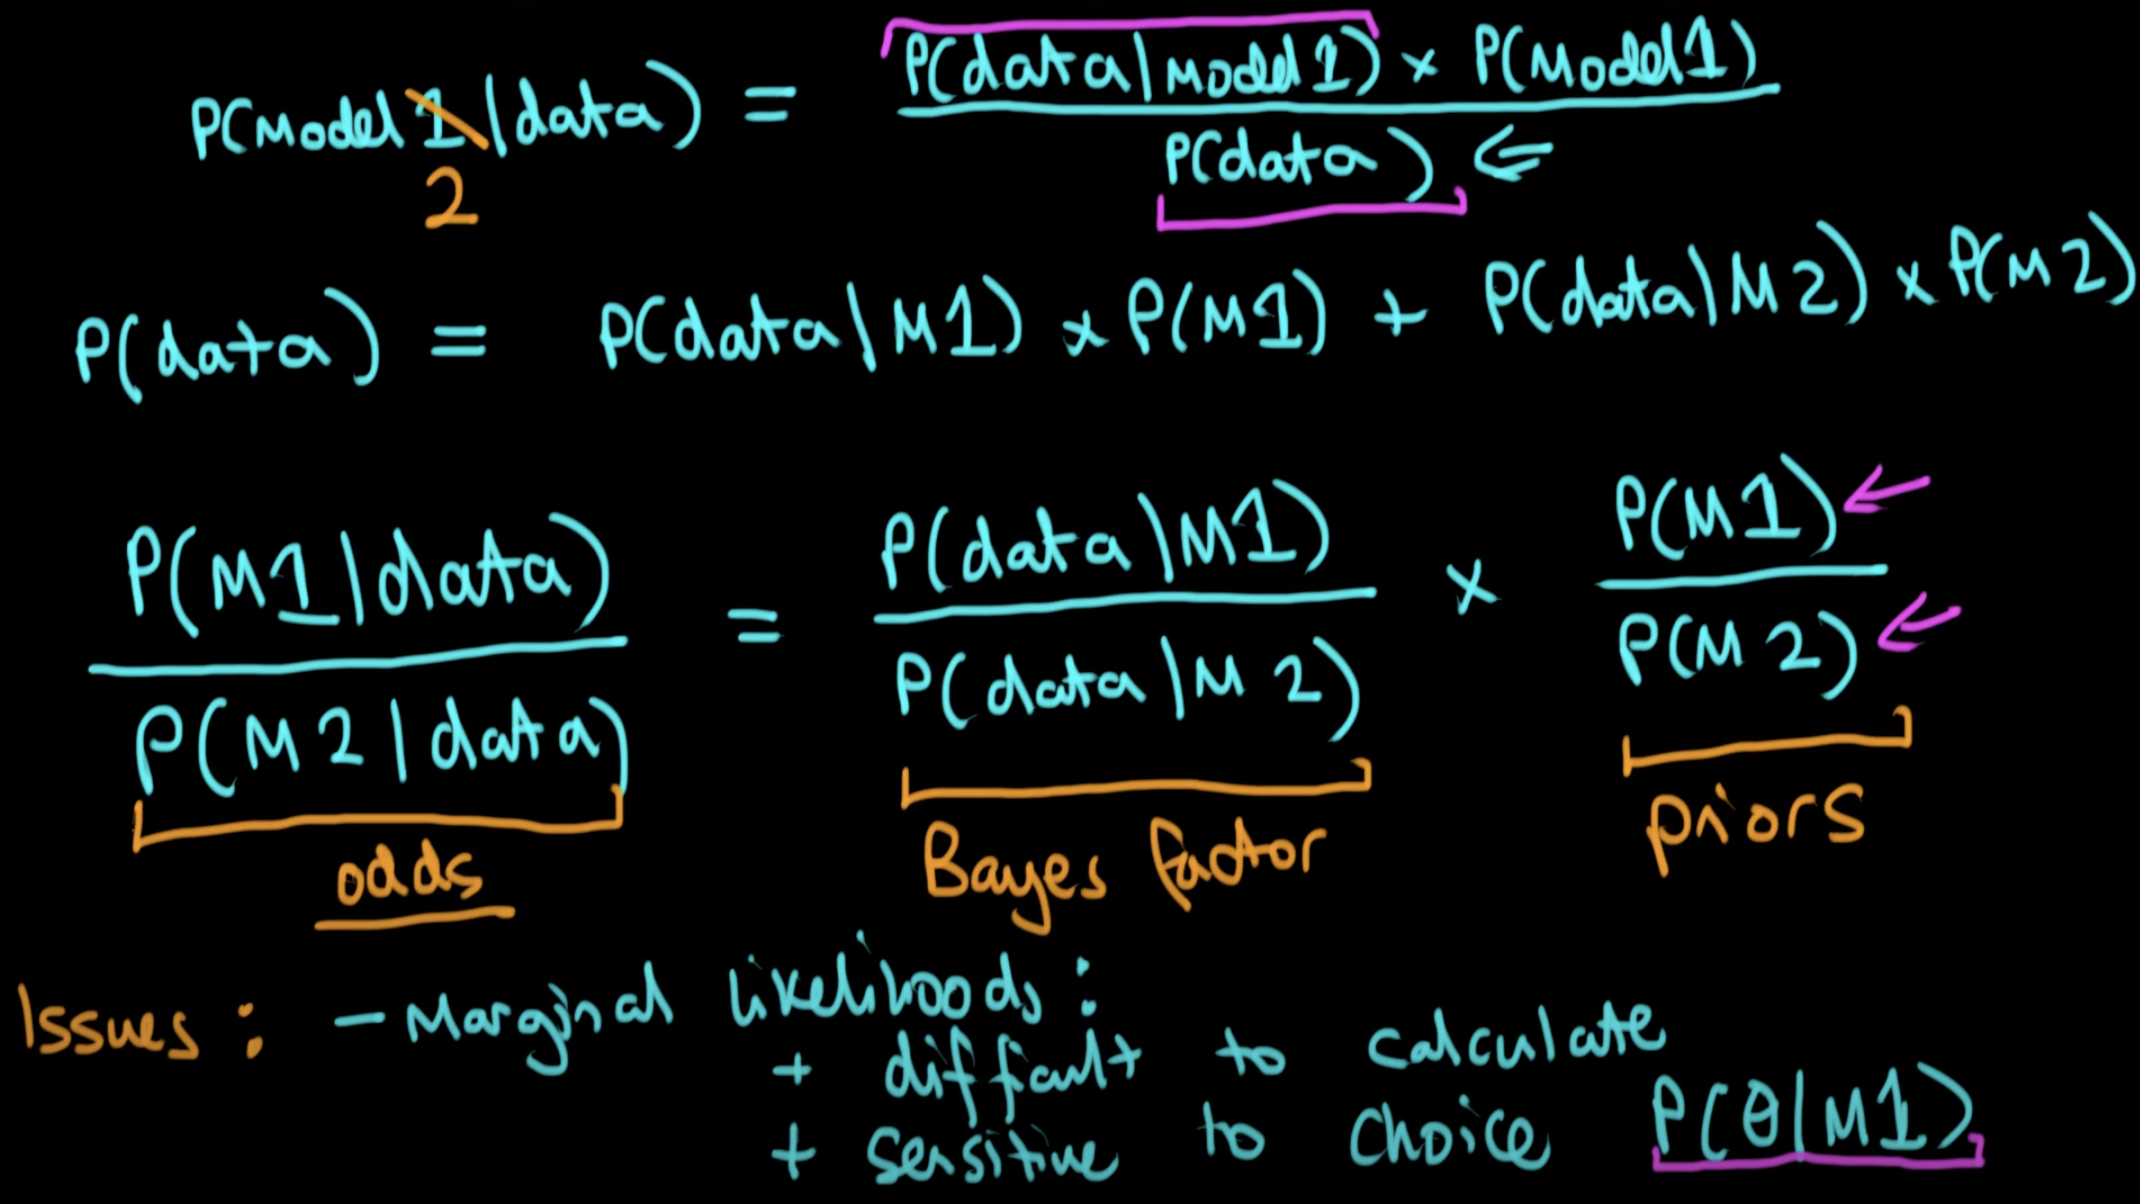 P(Model 1|data) = P(data|Model 1) x P(Model 1)
2
P(data) ⇐
P(data) = P(data|M1) x P(M1) + P(data|M2) x P(M2)
P(M1|data) = P(data|M1) x P(M1)
P(M2|data) P(data|M2) P(M2)
odds Bayes factor priors
Issues: - Marginal likelihoods:
+ difficult to calculate
+ sensitive to choice P(θ|M1)